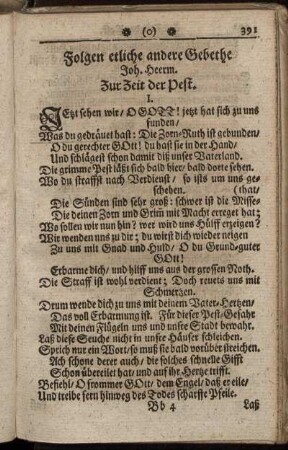 (o) 391
Folgen etliche andere Gebethe
Joh. Heerm.
Zur Zeit der Pest.
I.
JEtzt sehen wir/ O GOTT! jetzt hat sich zu uns
funden/
Was du gedräuet hast: Die Zorn-Ruth ist gebunden/
O du gerechter GOtt! du hast sie in der Hand/
Und schlägest schon damit diß unser Vaterland.
Die grimme Pest läßt sich bald hier/ bald dorte sehen.
Wo du straffst nach Verdienst/ so ists um uns ge-
schehen. (that/
Die Sünden sind sehr groß: schwer ist die Misse-
Die deinen Zorn und Grim̃ mit Macht erreget hat;
Wo sollen wir nun hin? wer wird uns Hülff erzeigen?
Wir wenden uns zu dir; du wirst dich wieder neigen
Zu uns mit Gnad und Huld/ O du Grund-guter
GOtt!
Erbarme dich/ und hilff uns aus der grossen Noth.
Die Straff ist wohl verdient; Doch reuets uns mit
Schmertzen.
Drum wende dich zu uns mit deinem Vater-Hertzen/
Das voll Erbarmung ist. Für dieser Pest-Gefahr
Mit deinen Flügeln uns und unsre Stadt bewahr.
Laß diese Seuche nicht in unsre Häuser schleichen.
Sprich nur ein Wort/ so muß sie bald vorüber streichen.
Ach schone derer auch/ die solches schnelle Gifft
Schon übereilet hat/ und auf ihr Hertze trifft.
Befiehl/ O frommer GOtt/ dem Engel/ daß er eile/
Und treibe fern hinweg des Todes scharffe Pfeile.
Bb 4 Laß